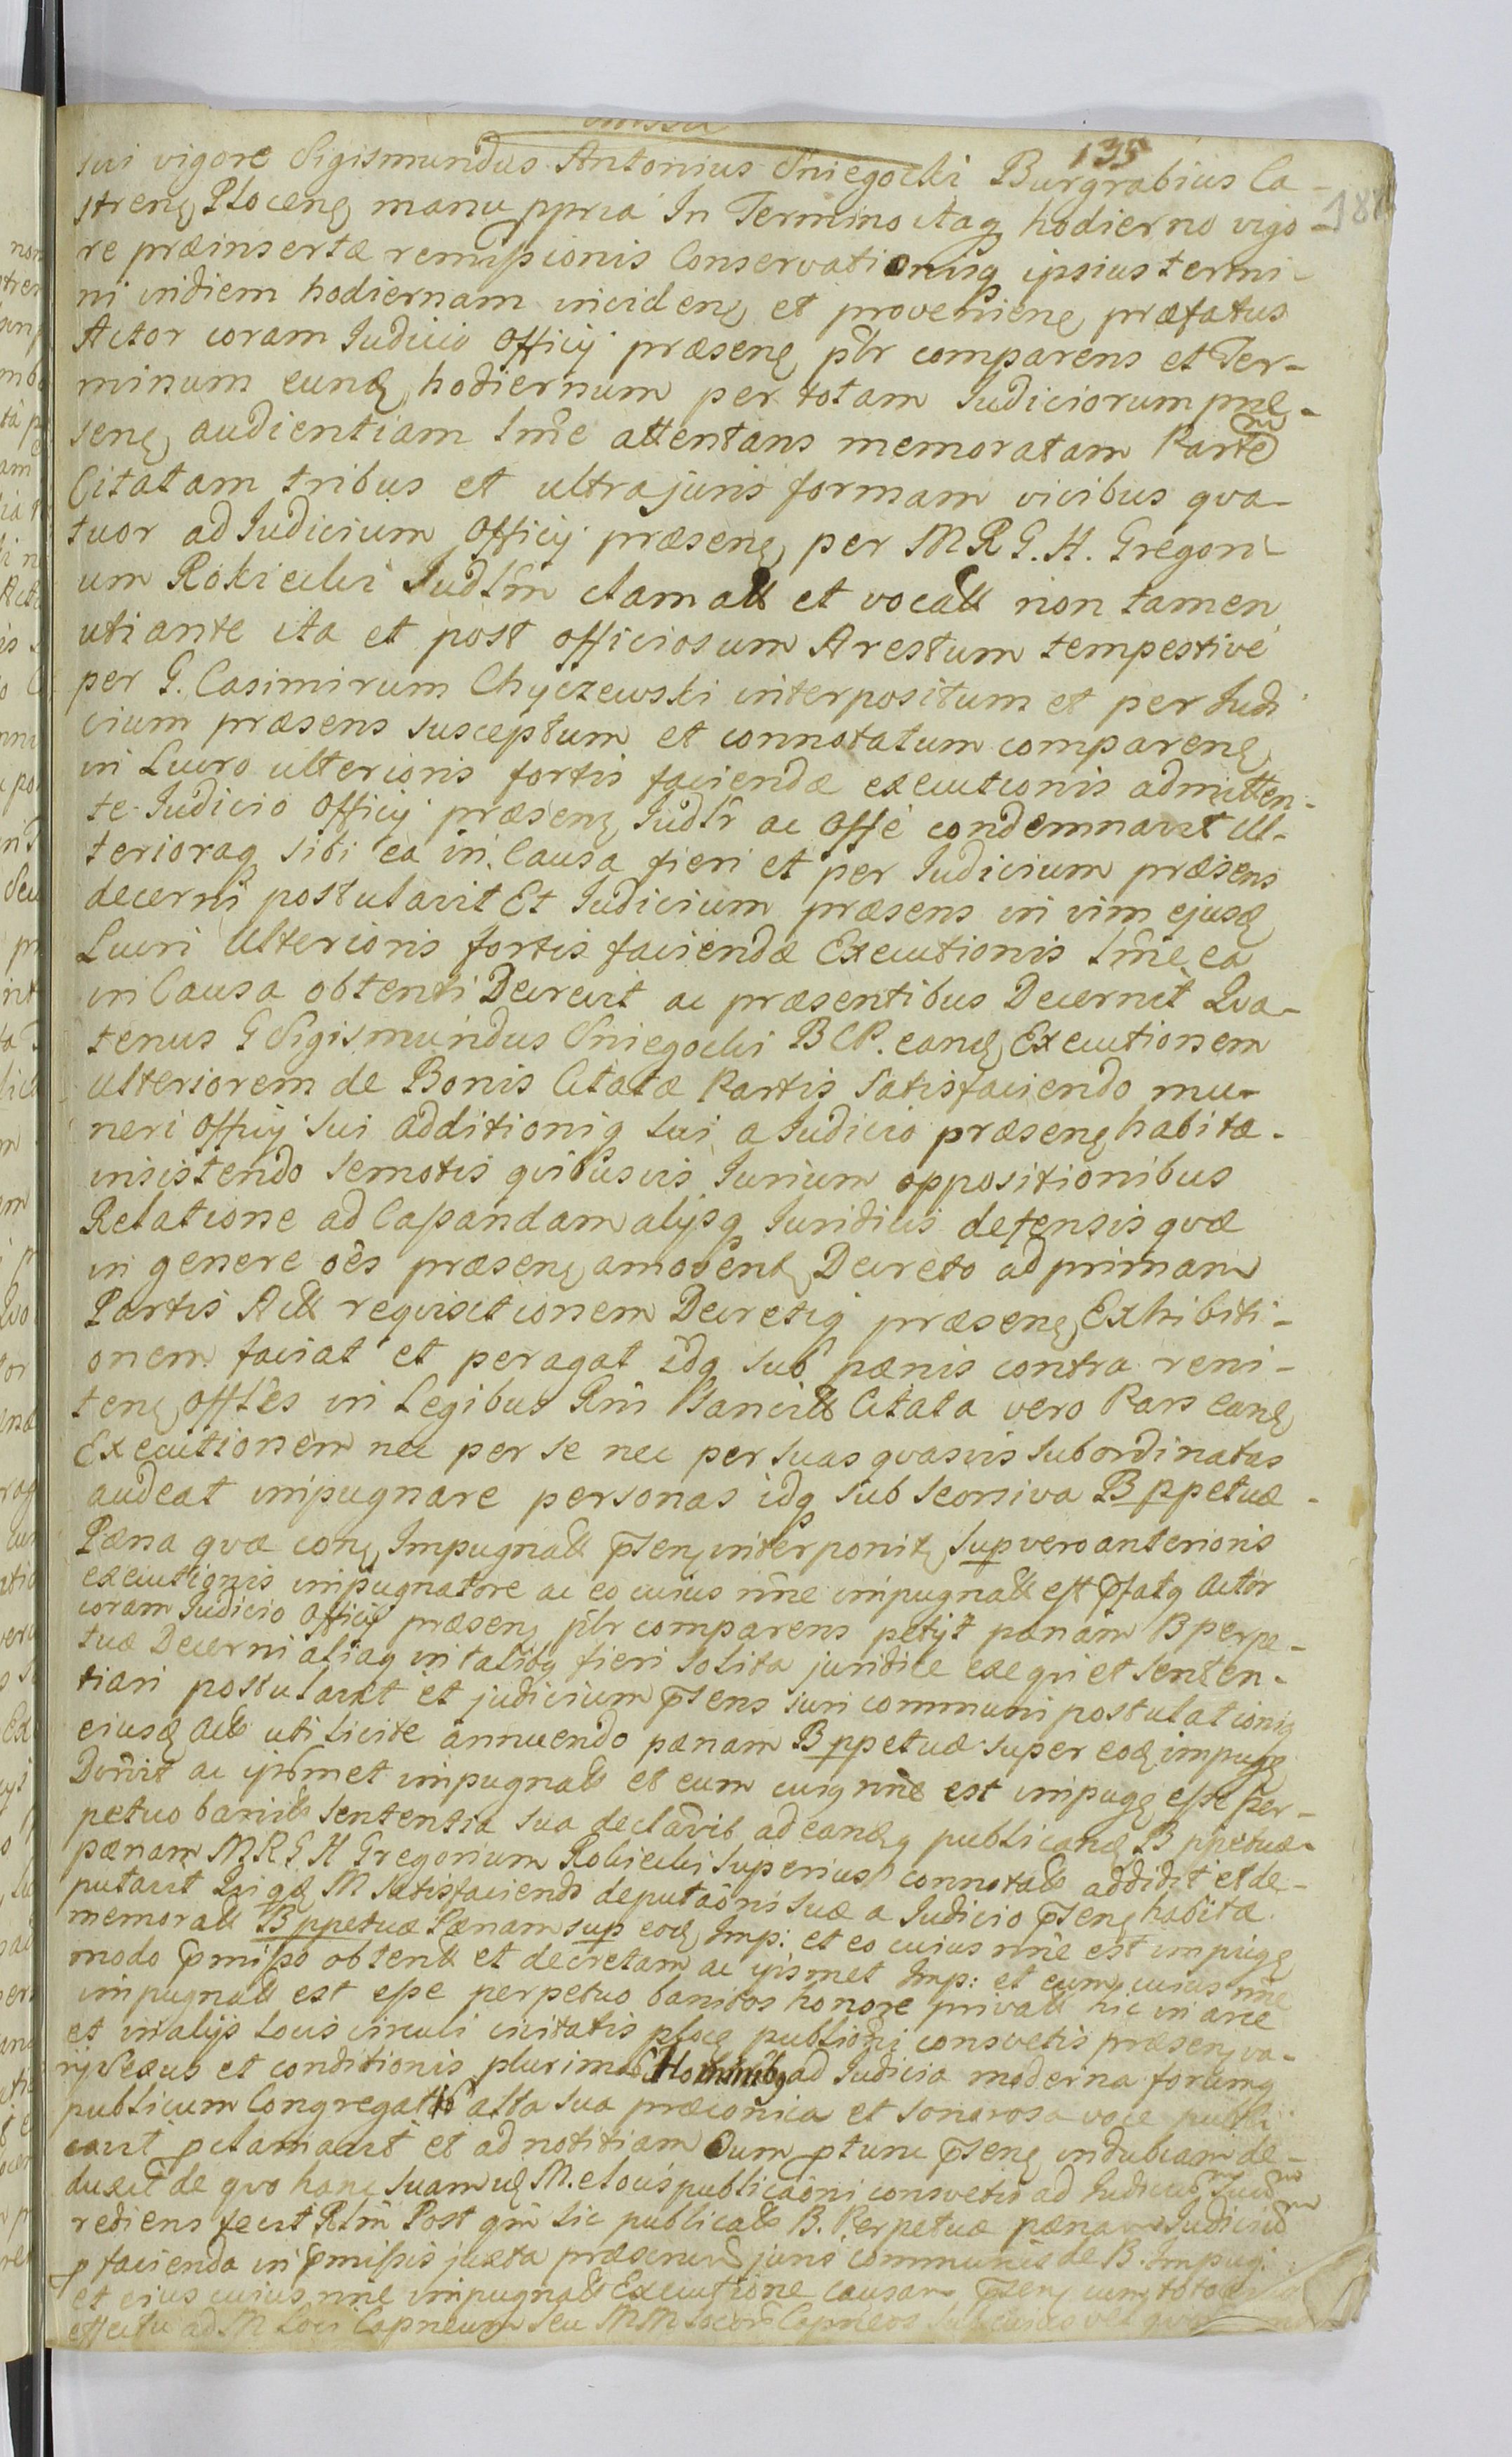 135
sui vigore Sigismundus Antonius Sniegocki Burgrabius Ca-
streng Ploceng manu ppria In Termino itaq hodierno vigo-
re præinsertæ remissionis Conservationisq ipsius termi-
ni indiem hodiernam inciden et provenien præfatus
Actor coram Iudicio Officij præsen plr comparens et Ter-
minum eund hodiernum per totam Iudiciorum præ-
sen audientiam lme attentans memoratam Partem
Citatam tribus et ultra juris formam vicibus qva-
tuor ad Iudicium Officij præsen per M R G. H. Gregori-
um Rokicki Iudlm clamatt et vocatt non tamen
uti ante ita et post officiosum Arestum tempestivé
per G. Casimirum Chyczewski interpositum et per Iudi
cium præsens susceptum et connotatum comparen
in Lucro ulterioris fortis faciendæ executionis admitten-
te Iudicio Officij præsen Iudlr ac Offé condemnavit Ul-
terioraq sibi ea in Causa fieri et per Iudicium præsens
decerni postulavit Et Iudicium præsens in vim ejusd
Lucri Ulterioris fortis faciendæ Executionis lme ea
in Causa obtenti Decrevit ac præsentibus Decernit Qva-
tenus G Sigismundus Sniegocki B C P. eand Executionem
ulteriorem de Bonis Citatæ Partis satisfaciendo mu-
neri Officij sui additioniq sui a Iudicio præsen habitæ
insistendo semotis qvibusvis Iurium oppositionibus
Relatione ad Cassandam alijsq Iuridicis defensis qvæ
in genere oes præsen amovent Decreto ad primam
Partis Actt reqvisitionem Decretiq præsen Exhibiti-
onem faciat et peragat idq sub pænis contra reni-
ten offles in Legibus Rni Sancitt Citata vero Pars eand
Executionem nec per se nec per suas qvasvis subordinatas
audeat impugnare personas idq sub seorsiva B ppetuæ
Pæna qvæ con Impugnatt psen interponit sup vero anterioris
executionis impugnatore ac eo cuius nne impugnatt est pfatq Actor
coram Iudicio Officij præsen plr comparens petijt pænam B perpe-
tuæ Decerni aliaq in talibq fieri solita juridice exeqvi et senten-
tiari postulavit et judicium psens juri communi postulationiq
eiusd Act uti licite annuendo pænam B ppetuæ super eod impug
ac ipsmet impugnatt et eum cuiq nne est impug esse per-
petuo banitt sententia sua declavit ad eandq publicand B ppetuæ
pænam M R G H Gregorium Rokicki superius connotatt addidit et de-
putavit Qui qd M satisfaciendo deputaonis suæ a Iudicio psen habitæ
memoratt B ppetuæ Pænam sup eod Imp: et eo cuius nne est impug
modo pmisso obtentt et decretam ac ipsmet Imp: et eum cuius nne
impugnatt est esse perpetuo banitos honore privatt hic in arce
et in alijs Locis circuli civitatis ploc publicõni consvetis præsen va-
rij Sexus et conditionis plurimis Hominibq ad Iudicia moderna forumq
publicum Congregatis alta sua præconica et sonorosa voce publi-
cavit pclamavit et ad notitiam Oium ptunc psen indubiam de-
duxit de qvo hanc suam M. e locis publicaõni consvetis ad Iudicium
rediens fecit Rlm Post qm sic publicatt B. Perpetuæ pænam Iudicium
p facienda in pmissis juxta præscrip juris communis de B. Impug.
et eius cuius nne impugnatt Executione causam psen cum toto
effectu ad M Loci Capneum seu MM locor Capneos